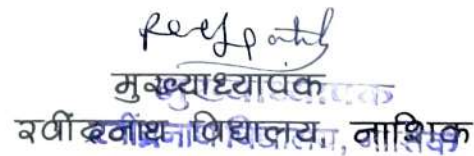 मुख्याध्यापक
रवींद्रनाथ विद्यालय, नाशिक